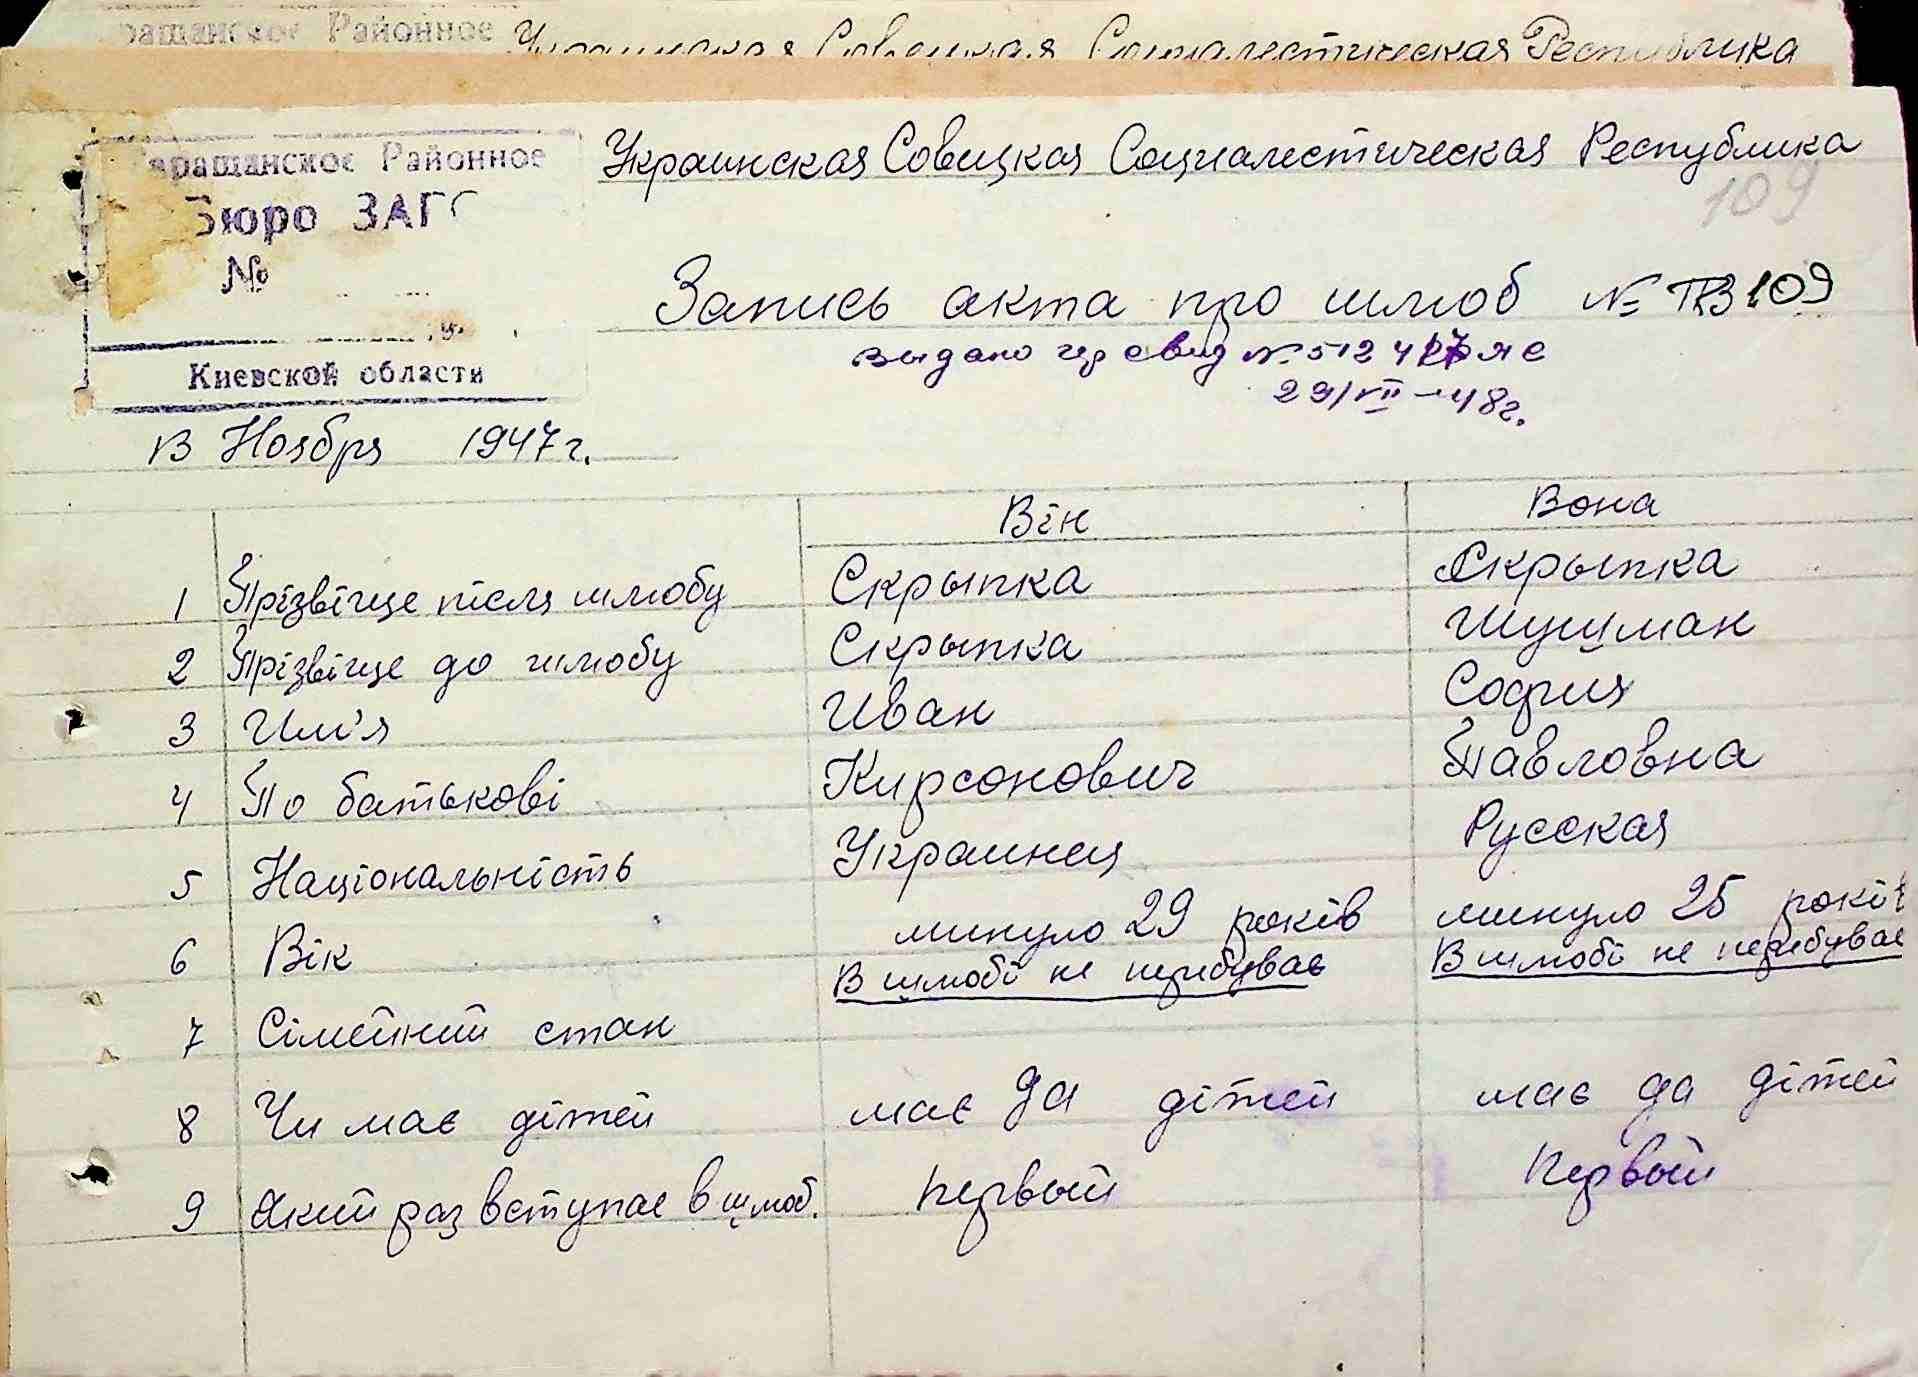 Районное
Украинская Совецкая Социалестическая Республика
Таращанское Районное
Бюро ЗАГС
№
Киевской области
Украинская Совецкая Социалестическая Республика
109
Запись акта про шлюб № 109
Выдано свид № 5124
29/VII-48г.
13 Ноября 1947г.
Він Вона
1 Прізвіще після шлюбу Скрыпка Скрыпка
2 Прізвіще до шлюбу Скрыпка Шушман
3 Им'я Иван София
4 По батькові Кирсонович Павловна
5 Національність Украинец Русская
6 Вік минуло 29 років минуло 25 років
В шлюбі не перебуває В шлюбі не перебуває
7 Сімейний стан
8 Чи має дітей має да дітей має да дітей
9 Який раз вступає в шлюб. первый первый